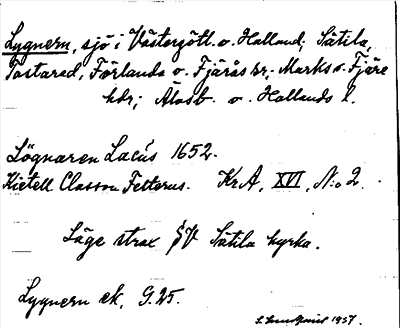 Lygnern, sjö i Västergötl. o. Halland; Sätila,
Tostared, Förlanda o. Fjärås sr; Marks o. Fjäre
hdr; Älvsb. o. Hallands l.
Lögnaren Lacus 1652.
Kietell Classon Felterus. KrA, XVI, N:o 2.
Läge strax SV Sätila kyrka.
Lygnern ek. G. 25.
1957.